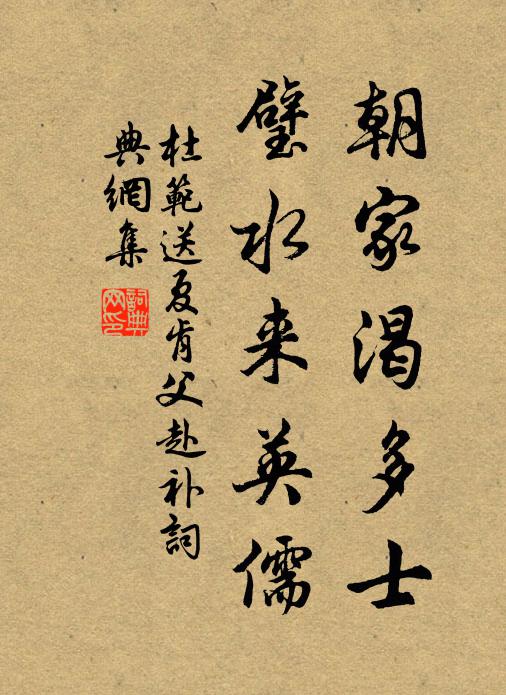 朝家渴多士
璧水来英儒
杜範送夏肯父赴补詞
典網集
詞典网印